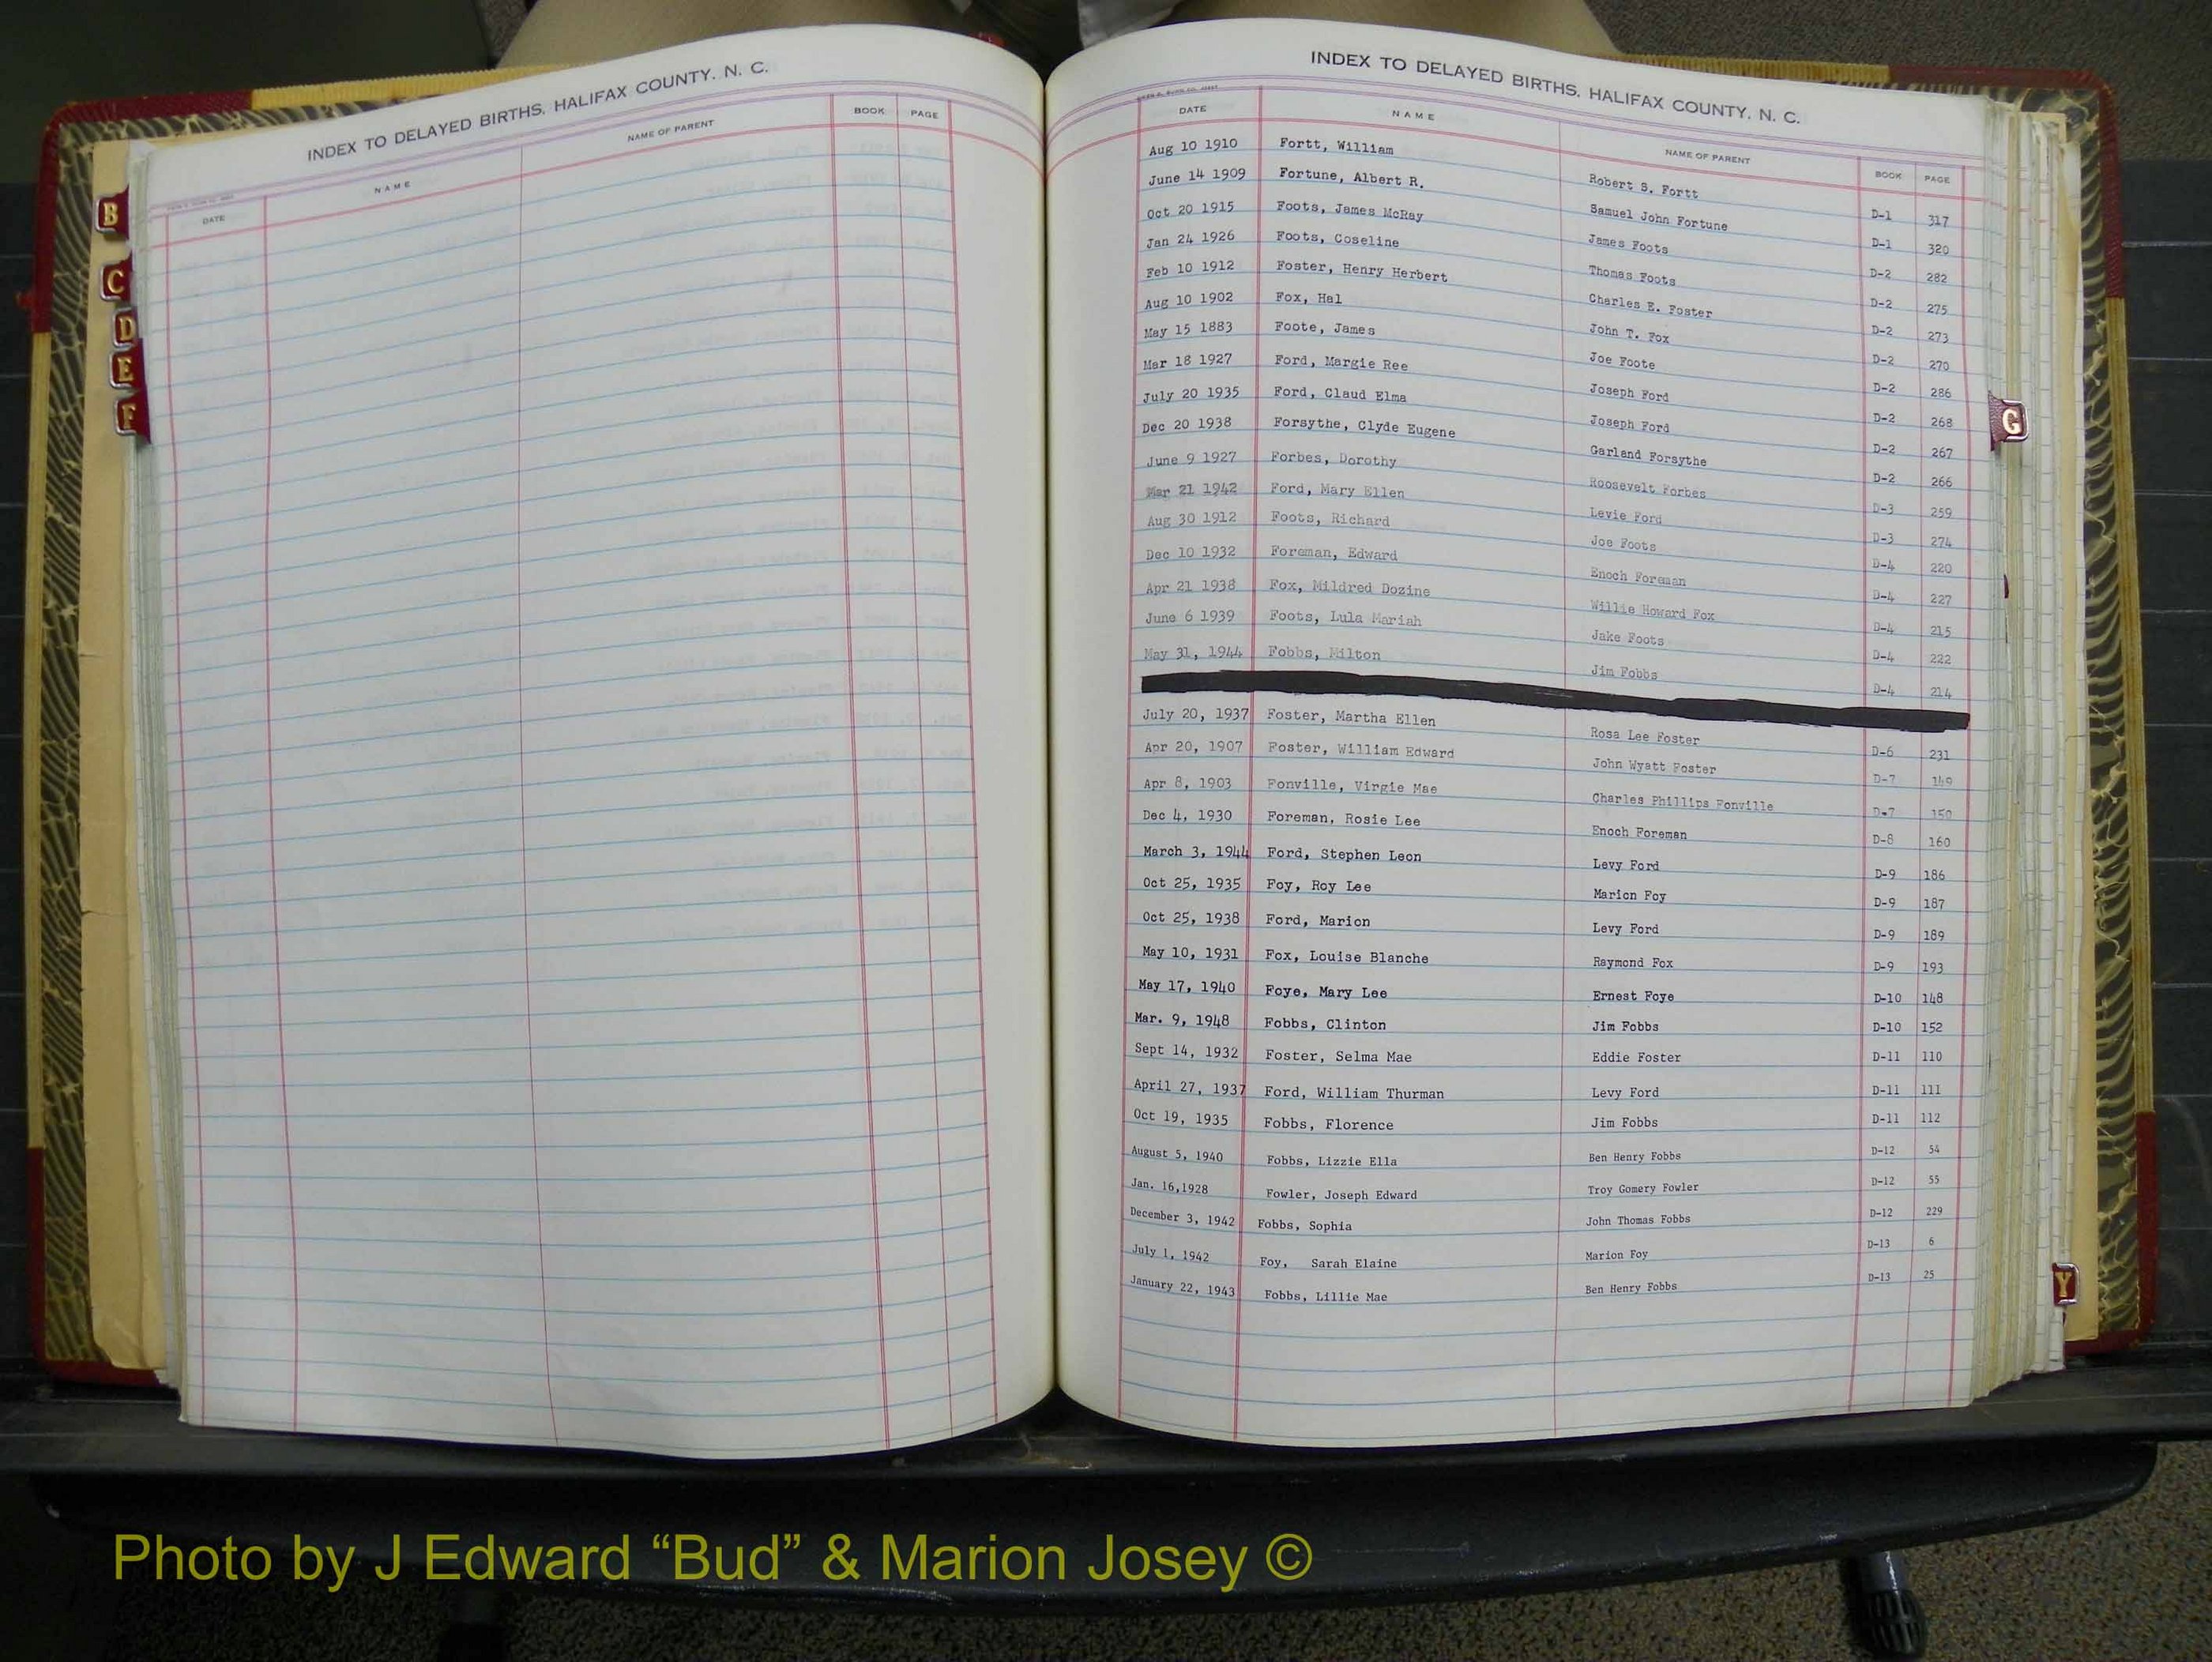 INDEX TO DELAYED BIRTHS, HALIFAX COUNTY, N. C.
DATE NAME NAME OF PARENT BOOK PAGE
B
C
D
E
F
INDEX TO DELAYED BIRTHS, HALIFAX COUNTY, N. C.
DATE NAME NAME OF PARENT BOOK PAGE
Aug 10 1910 Fortt, William Robert S. Fortt D-1 317
June 14 1909 Fortune, Albert R. Samuel John Fortune D-1 320
Oct 20 1915 Foots, James McRay James Foots D-2 282
Jan 24 1926 Foots, Coseline Thomas Foots D-2 275
Feb 10 1912 Foster, Henry Herbert Charles E. Foster D-2 273
Aug 10 1902 Fox, Hal John T. Fox D-2 270
May 15 1883 Foote, James Joe Foote D-2 286
Mar 18 1927 Ford, Margie Ree Joseph Ford D-2 268
July 20 1935 Ford, Claud Elma Joseph Ford D-2 267
Dec 20 1938 Forsythe, Clyde Eugene Garland Forsythe D-2 266
June 9 1927 Forbes, Dorothy Roosevelt Forbes D-3 259
Mar 21 1942 Ford, Mary Ellen Levie Ford D-3 274
Aug 30 1912 Foots, Richard Joe Foots D-4 220
Dec 10 1932 Foreman, Edward Enoch Foreman D-4 227
Apr 21 1938 Fox, Mildred Dozine Willie Howard Fox D-4 215
June 6 1939 Foots, Lula Mariah Jake Foots D-4 222
May 31, 1944 Fobbs, Milton Jim Fobbs D-4 214
July 20, 1937 Foster, Martha Ellen Rosa Lee Foster D-6 231
Apr 20, 1907 Foster, William Edward John Wyatt Foster D-7 149
Apr 8, 1903 Fonville, Virgie Mae Charles Phillips Fonville D-7 150
Dec 4, 1930 Foreman, Rosie Lee Enoch Foreman D-8 160
March 3, 1944 Ford, Stephen Leon Levy Ford D-9 186
Oct 25, 1935 Foy, Roy Lee Marion Foy D-9 187
Oct 25, 1938 Ford, Marion Levy Ford D-9 189
May 10, 1931 Fox, Louise Blanche Raymond Fox D-9 193
May 17, 1940 Foye, Mary Lee Ernest Foye D-10 148
Mar. 9, 1948 Fobbs, Clinton Jim Fobbs D-10 152
Sept 14, 1932 Foster, Selma Mae Eddie Foster D-11 110
April 27, 1937 Ford, William Thurman Levy Ford D-11 111
Oct 19, 1935 Fobbs, Florence Jim Fobbs D-11 112
August 5, 1940 Fobbs, Lizzie Ella Ben Henry Fobbs D-12 54
Jan. 16,1928 Fowler, Joseph Edward Troy Gomery Fowler D-12 55
December 3, 1942 Fobbs, Sophia John Thomas Fobbs D-12 229
July 1, 1942 Foy, Sarah Elaine Marion Foy D-13 6
January 22, 1943 Fobbs, Lillie Mae Ben Henry Fobbs D-13 25
G
Y
Photo by J Edward “Bud” & Marion Josey ©